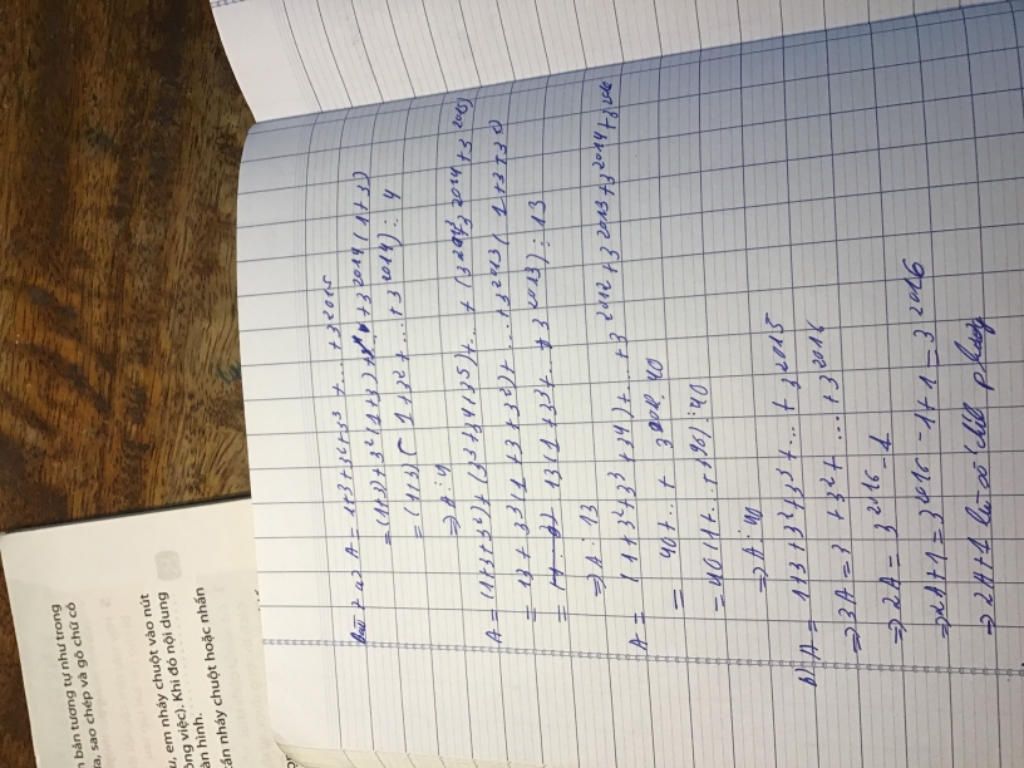 Bài 7 a) A = 1+3+3²+3³ + ... + 3²⁰¹⁵
= (1+3)+3²(1+3)+ ... +3²⁰¹⁴(1+3)
= (1+3)(1+3²+...+3²⁰¹⁴) ⋮ 4
⇒ A ⋮ 4
A = (1+3+3²)+(3³+3⁴+3⁵)+... +
= 13 + 3³(1+3+3²)+...+3²⁰¹³(1+3+3²)
= 13(1+3³+...+3²⁰¹³) ⋮ 13
⇒ A ⋮ 13
A = (1+3+3²+3³)+...+3²⁰¹²+3²⁰¹³+3²⁰¹⁴+
= 40+...+ 3²⁰¹². 40
= 40(1+...+ ) ⋮ 40
⇒ A ⋮ 40
b) A = 1+3+3²+3³+...+3²⁰¹⁵
⇒ 3A = 3+3²+...+3²⁰¹⁶
⇒ 2A = 3²⁰¹⁶-1
⇒ 2A+1 = 3²⁰¹⁶-1+1 = 3²⁰¹⁶
⇒ 2A+1 là số
n bản tương tự như trong
a, sao chép và gõ chữ có
u, em nháy chuột vào nút
ông việc). Khi đó nội dung
àn hình.
cần nháy chuột hoặc nhấn